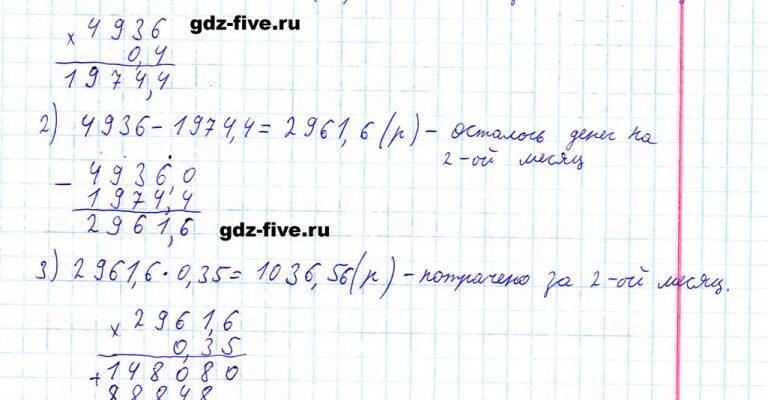 × 4936
gdz-five.ru
0,4
1974,4
2) 4936 - 1974,4 = 2961,6 (р) - осталось денег на
2-ой месяц
- 4936,0
1974,4
2961,6
gdz-five.ru
3) 2961,6 · 0,35 = 1036,56 (р) - потрачено за 2-ой месяц.
× 2961,6
0,35
+ 148080
88848